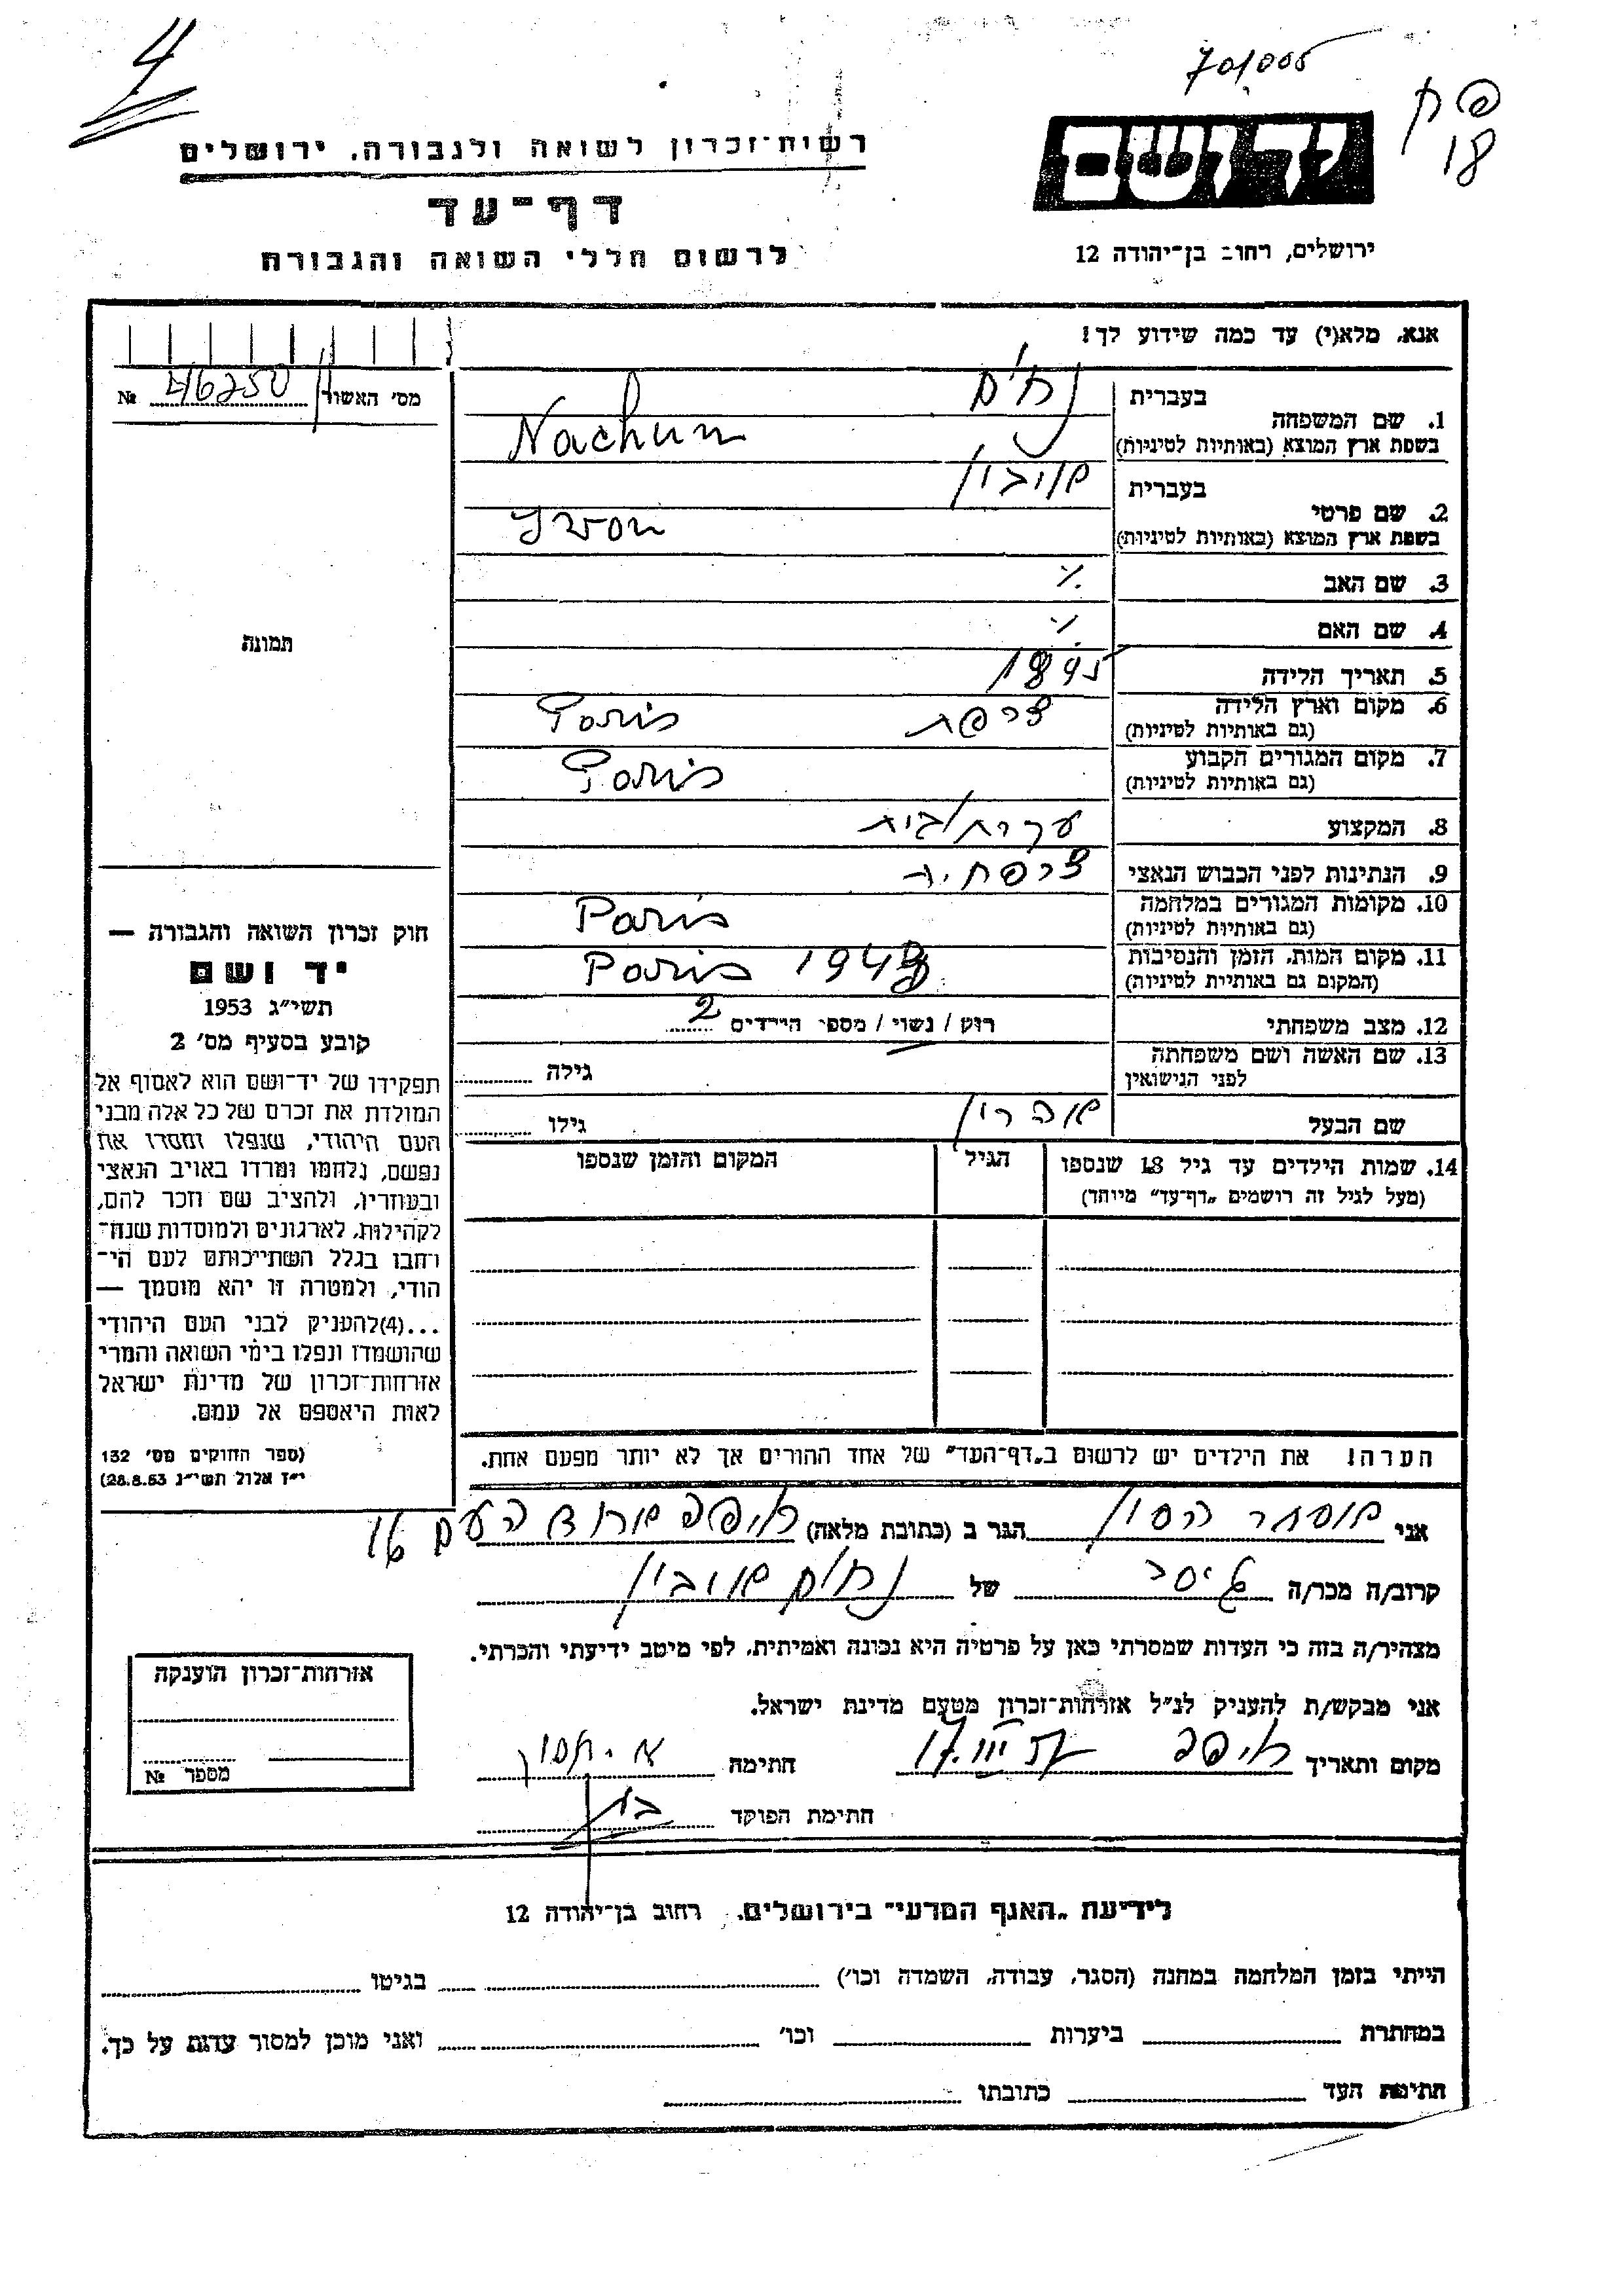 4
701005
פח
18
רשות־זכרון לשואה ולגבורה, ירושלים
דף־עד
לרשום חללי השואה והגבורה
יד ושם
ירושלים, רחוב בן־יהודה 12
אנא, מלא(י) עד כמה שידוע לך!
מס׳ האשור № 46250
תמונה
1. שם המשפחה
בעברית נחום
בשפת ארץ המוצא (באותיות לטיניות) Nachum
2. שם פרטי
בעברית איבון
בשפת ארץ המוצא (באותיות לטיניות) Yvon
3. שם האב ٪
4. שם האם ٪
5. תאריך הלידה 1895
6. מקום וארץ הלידה צרפת Paris
(גם באותיות לטיניות)
7. מקום המגורים הקבוע Paris
(גם באותיות לטיניות)
8. המקצוע עקרת/בית
9. הנתינות לפני הכבוש הנאצי צרפתית
10. מקומות המגורים במלחמה Paris
(גם באותיות לטיניות)
11. מקום המות, הזמן והנסיבות Paris 1943
(המקום גם באותיות לטיניות)
12. מצב משפחתי רווק / נשוי / מספר הילדים 2
13. שם האשה ושם משפחתה גילה
לפני הנישואין
שם הבעל אהרון גילו
14. שמות הילדים עד גיל 18 שנספו הגיל המקום והזמן שנספו
(מעל לגיל זה רושמים „דף־עד״ מיוחד)
הערה! את הילדים יש לרשום ב„דף־העד״ של אחד ההורים אך לא יותר מפעם אחת.
חוק זכרון השואה והגבורה —
יד ושם
תשי״ג 1953
קובע בסעיף מס׳ 2
תפקידו של יד־ושם הוא לאסוף אל
המולדת את זכרם של כל אלה מבני
העם היהודי, שנפלו ומסרו את
נפשם, נלחמו ומרדו באויב הנאצי
ובעוזריו, ולהציב שם וזכר להם,
לקהילות, לארגונים ולמוסדות שנח־
רבו בגלל השתייכותם לעם הי־
הודי, ולמטרה זו יהא מוסמך —
...(4) להעניק לבני העם היהודי
שהושמדו ונפלו בימי השואה והמרי
אזרחות־זכרון של מדינת ישראל
לאות היאספם אל עמם.
(ספר החוקים מס׳ 132
י״ז אלול תשי״ג 28.8.53)
אני אסתר חסון הגר ב (כתובת מלאה) חיפה אחד העם 16
קרוב/ה מכר/ה גיסה של נחום איבון
מצהיר/ה בזה כי העדות שמסרתי כאן על פרטיה היא נכונה ואמיתית, לפי מיטב ידיעתי והכרתי.
אני מבקש/ת להעניק לנ״ל אזרחות־זכרון מטעם מדינת ישראל.
מקום ותאריך חיפה 17.III חתימה א. חסון
חתימת הפוקד
אזרחות־זכרון הוענקה
מספר №
לידיעת „האגף המדעי״ בירושלים, רחוב בן־יהודה 12
הייתי בזמן המלחמה במחנה (הסגר, עבודה, השמדה וכו׳) בגיטו
במחתרת ביערות וכו׳ ואני מוכן למסור עדות על כך.
חתימת העד כתובתו